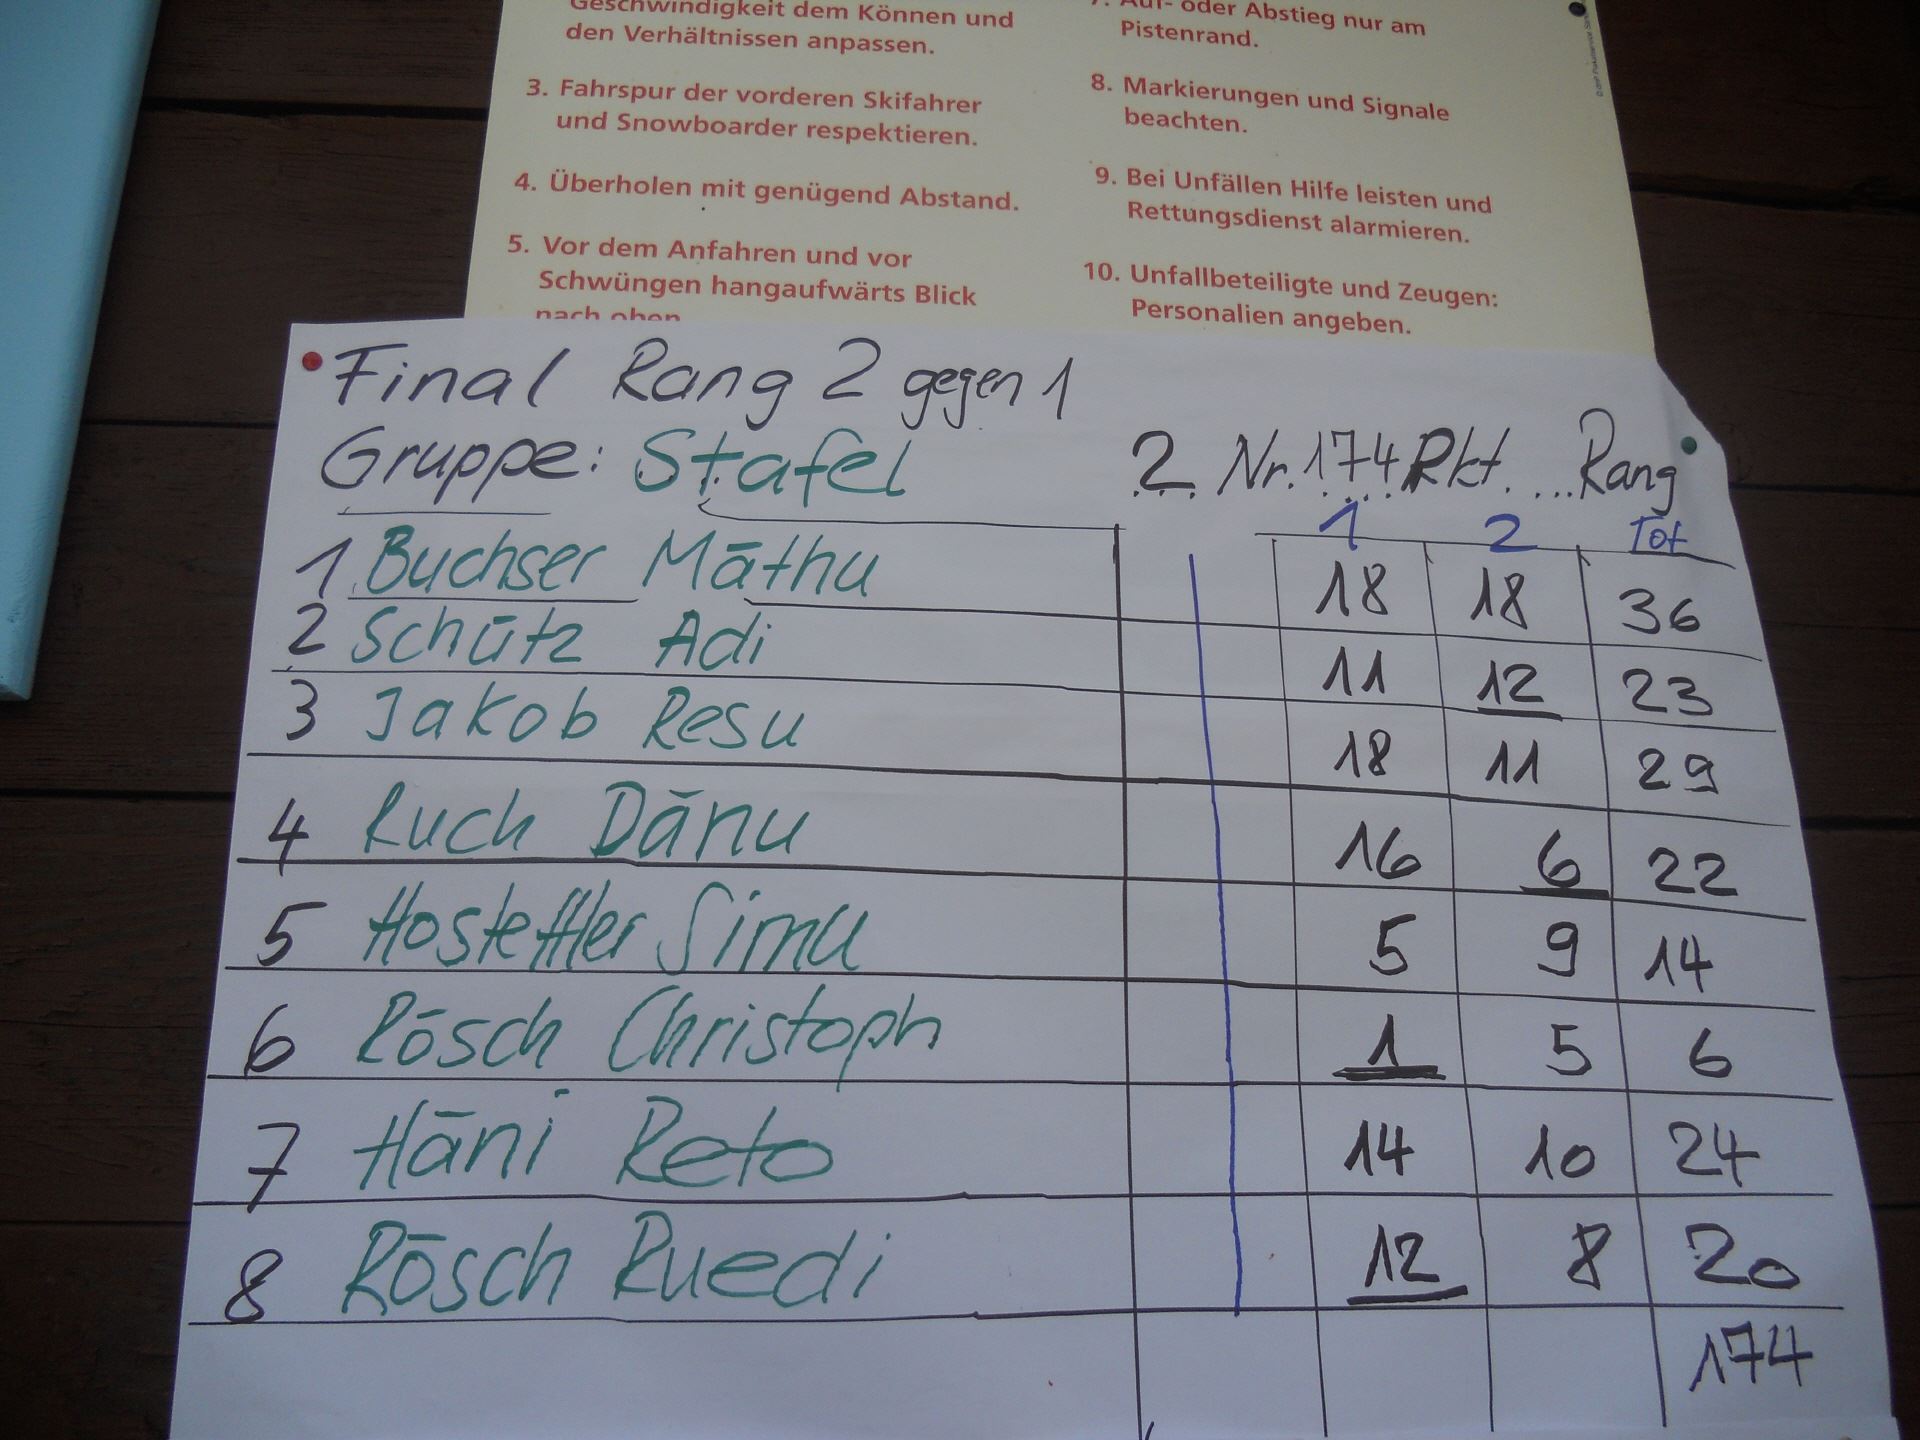 Geschwindigkeit dem Können und
den Verhältnissen anpassen.
3. Fahrspur der vorderen Skifahrer
und Snowboarder respektieren.
4. Überholen mit genügend Abstand.
5. Vor dem Anfahren und vor
Schwüngen hangaufwärts Blick
nach oben
7. Auf- oder Abstieg nur am
Pistenrand.
8. Markierungen und Signale
beachten.
9. Bei Unfällen Hilfe leisten und
Rettungsdienst alarmieren.
10. Unfallbeteiligte und Zeugen:
Personalien angeben.
Final Rang 2 gegen 1
Gruppe: Stafel 2. Nr. 174 Pkt. ... Rang
1 2 Tot
1 Buchser Mäthu 18 18 36
2 Schütz Adi 11 12 23
3 Jakob Resu 18 11 29
4 Ruch Dänu 16 6 22
5 Hostettler Simu 5 9 14
6 Rösch Christoph 1 5 6
7 Häni Reto 14 10 24
8 Rösch Ruedi 12 8 20
174